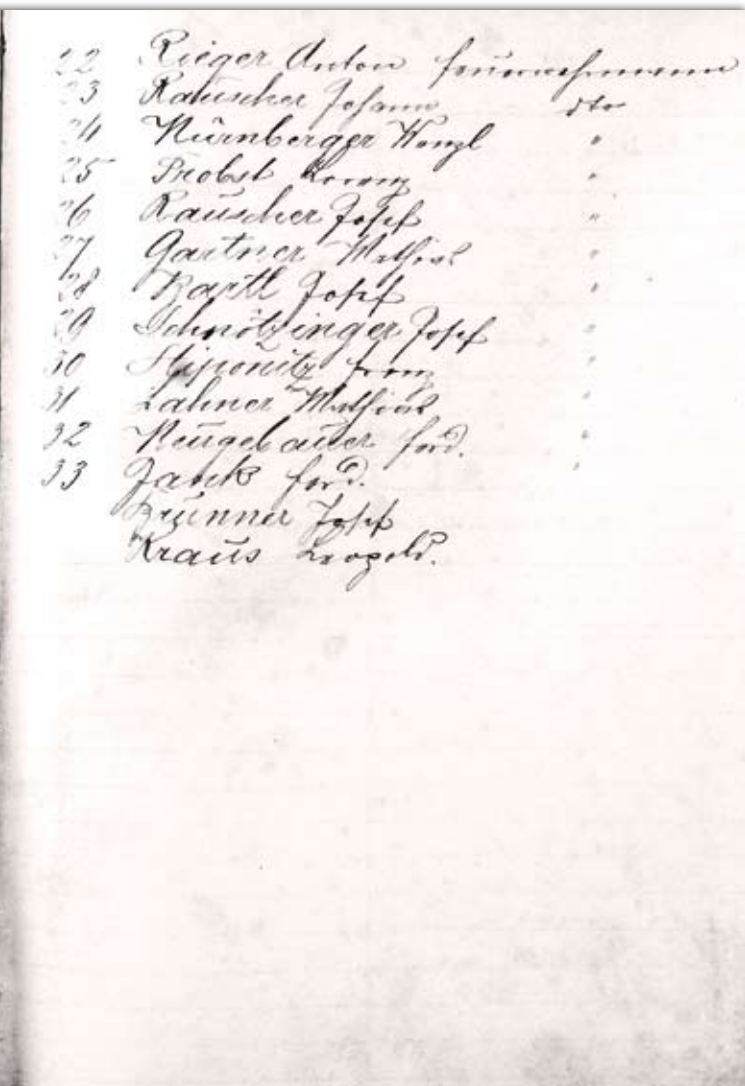 22 Rieger Anton Feuerwehrmann
23 Rauscher Johann dto
24 Nürnberger Wenzl "
25 Probst Lorenz "
26 Rauscher Josef "
27 Gartner Mathias "
28 Bartl Josef "
29 Schnötzinger Josef "
30 Franz "
31 Lahner Mathias "
32 Neugebauer Ferd. "
33 Jank Ferd. "
Brunner Josef
Kraus Leopold.